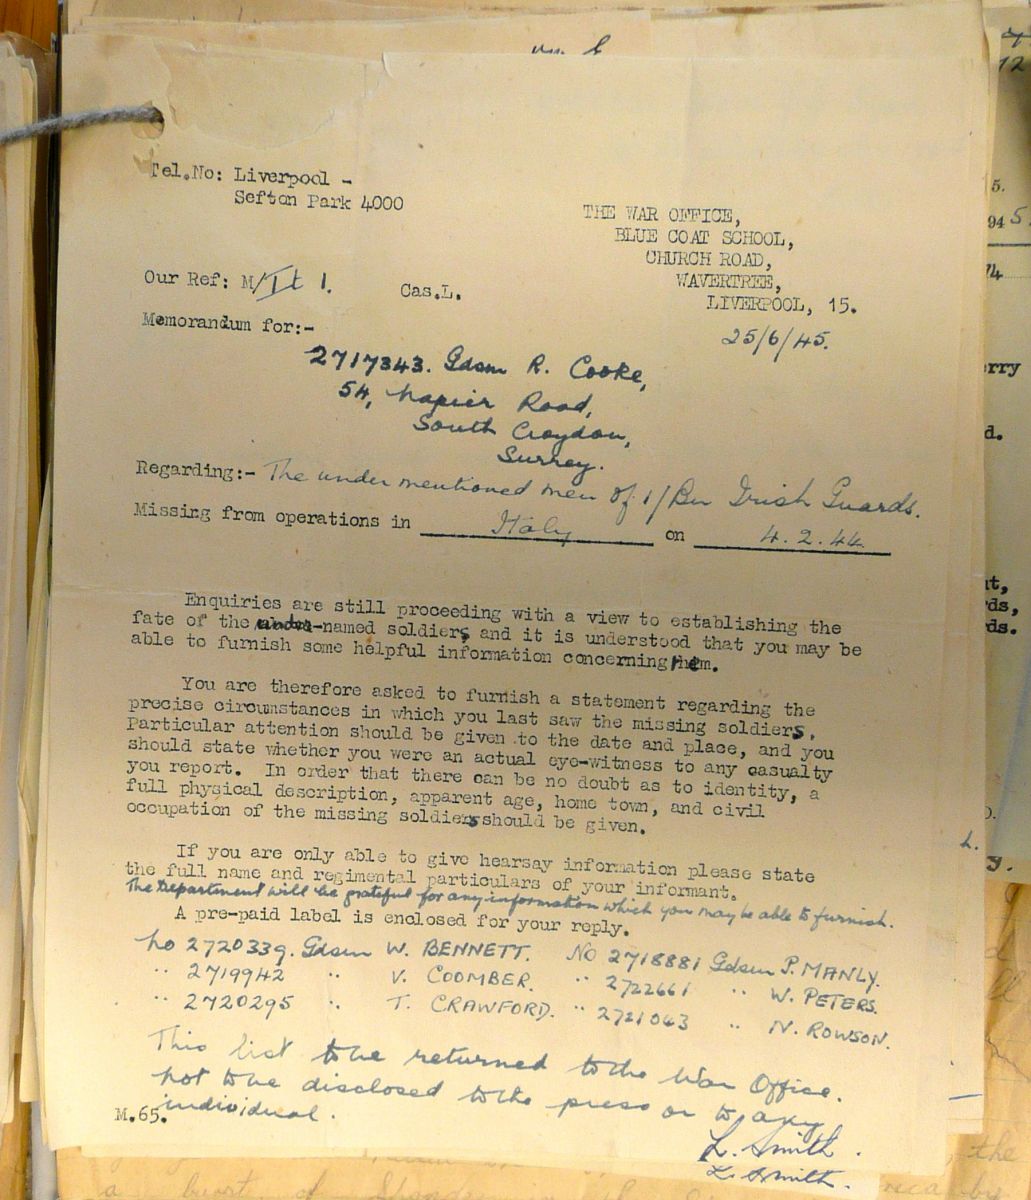 Tel.No: Liverpool -
Sefton Park 4000
THE WAR OFFICE,
BLUE COAT SCHOOL,
CHURCH ROAD,
WAVERTREE,
LIVERPOOL, 15.
Our Ref: M/II 1.
Cas.L.
25/6/45.
Memorandum for:-
2717343. Gdsm R. Cooke,
54, Napier Road,
South Croydon,
Surrey.
Regarding:- The under mentioned men of 1/Bn Irish Guards.
Missing from operations in Italy on 4.2.44
Enquiries are still proceeding with a view to establishing the
fate of the under-named soldiers and it is understood that you may be
able to furnish some helpful information concerning them.
You are therefore asked to furnish a statement regarding the
precise circumstances in which you last saw the missing soldiers.
Particular attention should be given to the date and place, and you
should state whether you were an actual eye-witness to any casualty
you report. In order that there can be no doubt as to identity, a
full physical description, apparent age, home town, and civil
occupation of the missing soldiers should be given.
If you are only able to give hearsay information please state
the full name and regimental particulars of your informant.
The Department will be grateful for any information which you may be able to furnish.
A pre-paid label is enclosed for your reply.
No 2720339. Gdsm W. BENNETT. No 2718881 Gdsm P. MANLY.
" 2719942 " V. COOMBER. " 2722661 " W. PETERS.
" 2720295 " T. CRAWFORD. " 2721043 " N. ROWSON.
This list to be returned to the War Office.
not to be disclosed to the press or to any
individual.
M.65.
L. Smith.
L. Smith.
12
5.
945
74
rry
d.
nt,
rds,
ds.
L.
y.
the